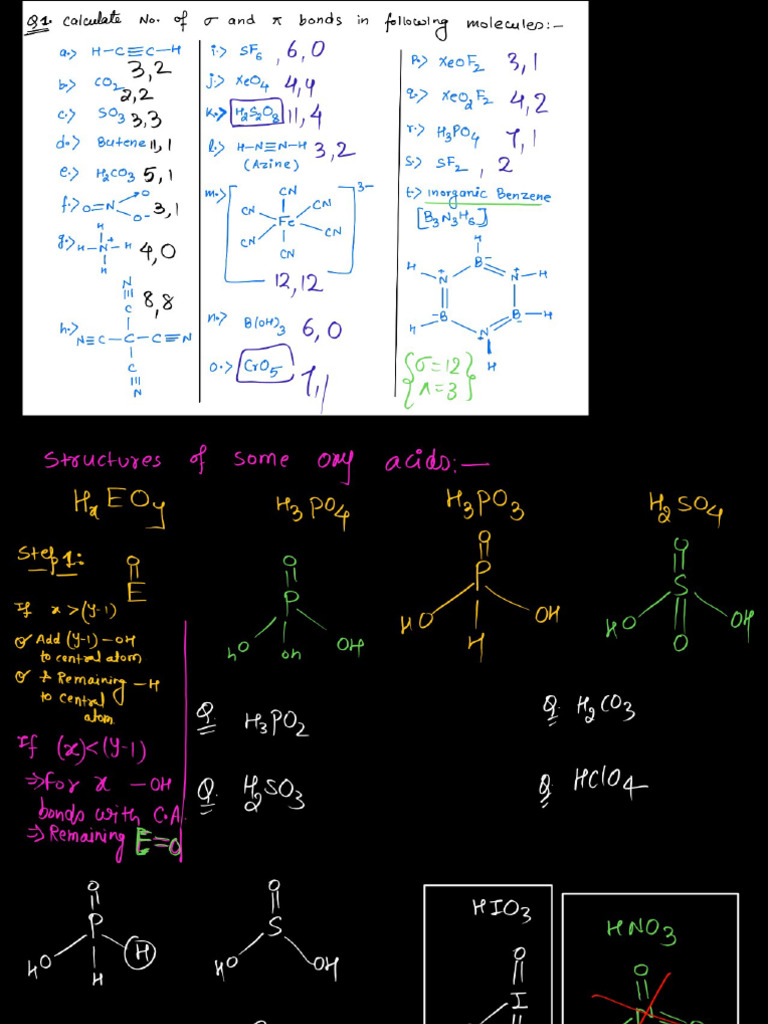 Q1. Calculate No. of σ and π bonds in following molecules:-
a.) H-C≡C-H
3,2
b.) CO2
2,2
c.) SO3 3,3
d.) Butene 11,1
e.) H2CO3 5,1
f.) O=N O O- 3,1
g.) H H-N+-H H
4,0
h.) N≡C-C-C≡N C≡N C≡N
8,8
i.) SF6, 6,0
j.) XeO4 4,4
k.) H2S2O8 11,4
l.) H-N≡N-H 3,2
(Azine)
m.) [Fe CN CN CN CN CN CN]3-
12,12
n.) B(OH)3 6,0
o.) CrO5 7,1
p.) XeOF2 3,1
q.) XeO2F2 4,2
r.) H3PO4 7,1
s.) SF2, 2
t.) inorganic Benzene
[B3N3H6]
H
H B- H
N+ N+
-B B-
H N+ H
H
{σ=12
π=3}
Structures of some oxy acids:-
HxEOy H3PO4 H3PO3 H2SO4
Step 1: O
E
If x>(y-1)
Add (y-1)-OH
to central atom
& Remaining -H
to central
atom
If (x)<(y-1)
⇒For x -OH
bonds with C.A.
⇒Remaining E=O
O
P
HO OH OH
O
P
HO H OH
O
S
HO O OH
Q. H3PO2
Q. H2CO3
Q. H2SO3
Q. HClO4
O
P
HO H H
O
S
HO OH
HIO3
O
I
HNO3
O
N